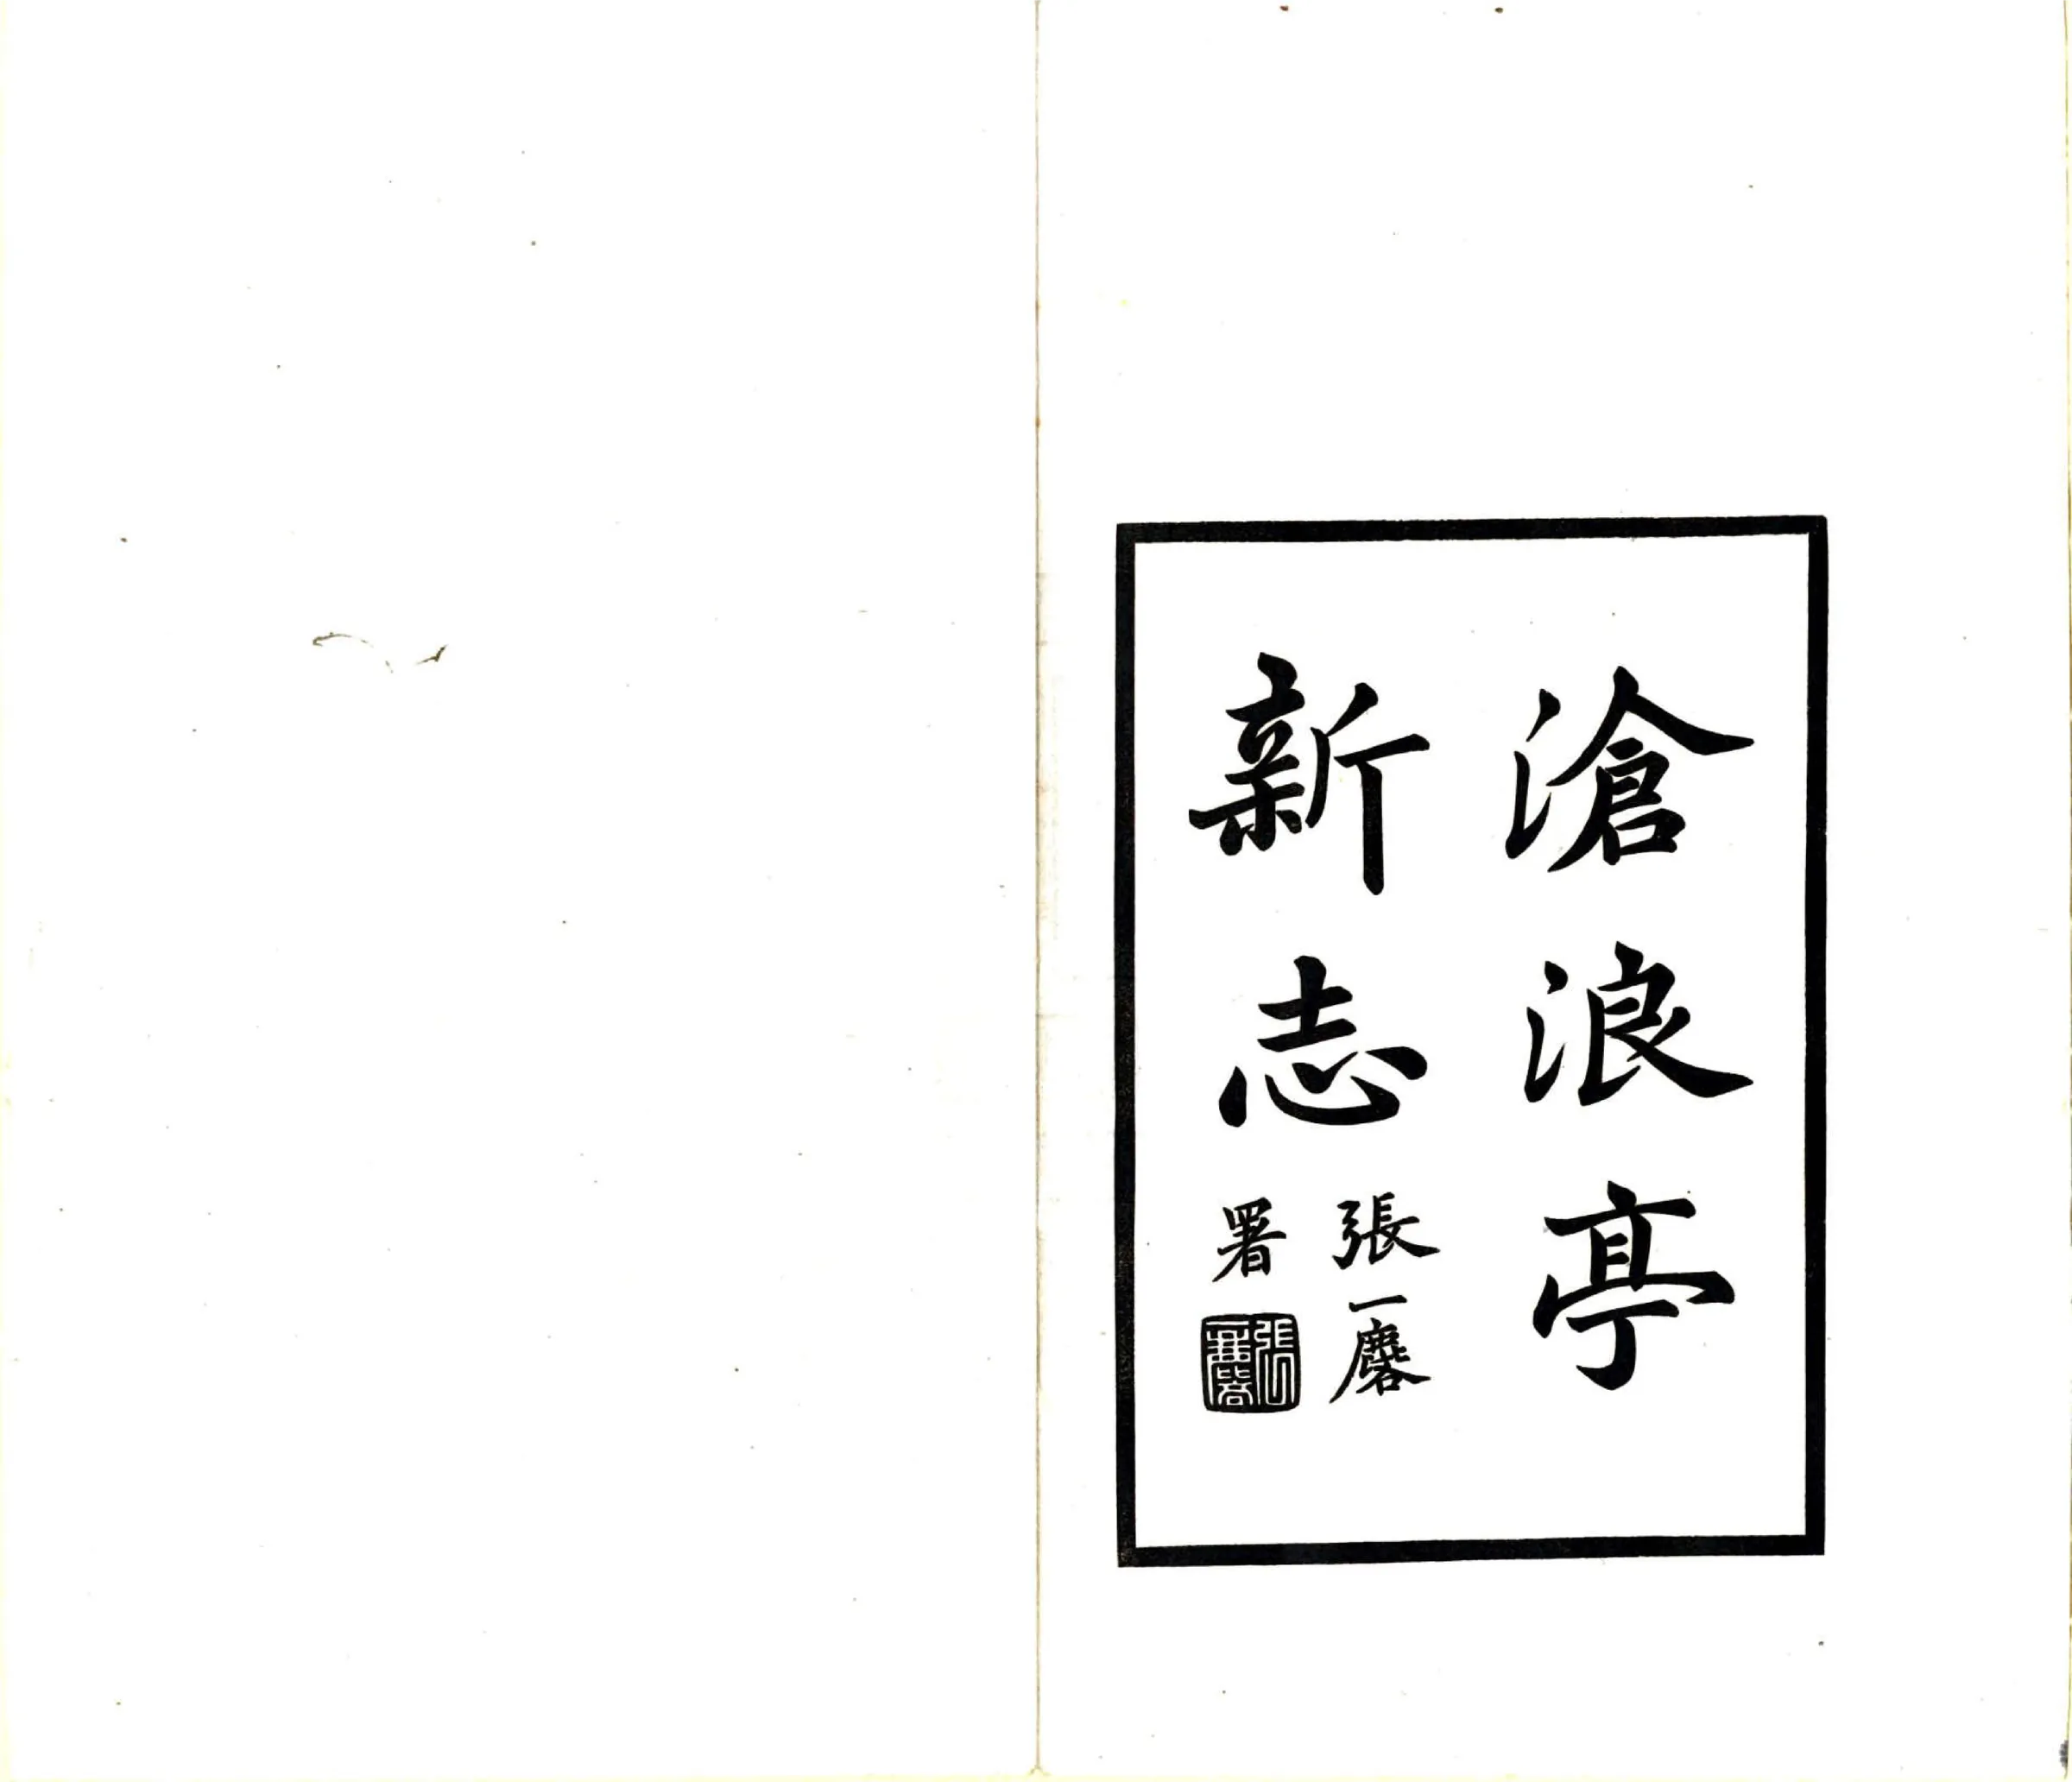 滄浪亭
新志
張一麐
署
張一麐